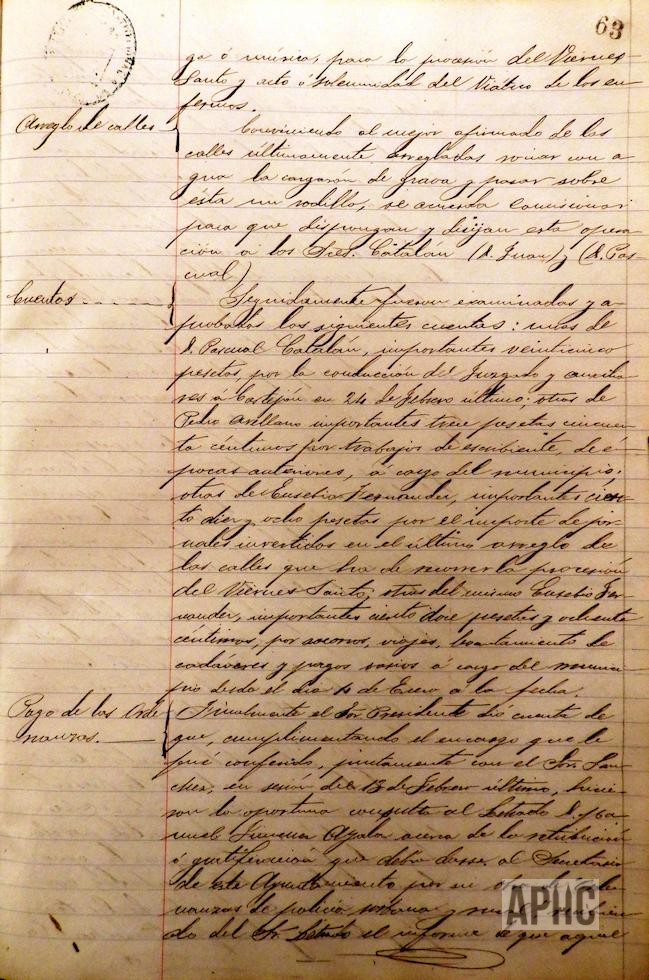 63
ga ó música, para la procesión del Viernes
Santo y acto ó solemnidad del Viático de los en-
fermos.
Arreglo de calles
Conviniendo al mejor afirmado de las
calles últimamente arregladas rociar con a-
gua la cargaron de grava y pasar sobre
ésta un rodillo, se acuerda comisionar
para que dispongan y dirijan esta opera-
ción á los Sres. Catalán (D. Juan) y (D. Pas-
cual)
Cuentas
Seguidamente fueron examinadas y a-
probadas las siguientes cuentas: unas de
D. Pascual Catalán, importantes veinticinco
pesetas por la conducción del Juzgado y auxilia-
res á Castejón en 24 de Febrero último; otras de
Pedro Arellano importantes trece pesetas cincuen-
ta céntimos por trabajos de escribiente, de é-
pocas anteriores, á cargo del municipio;
otras de Eusebio Fernander, importantes cien-
to diez y ocho pesetas por el importe de jor-
nales invertidos en el último arreglo de
las calles que ha de recorrer la procesión
del Viernes Santo; otras del mismo Eusebio Fer-
nander, importantes ciento doce pesetas y ochenta
céntimos, por socorros, viajes, levantamiento de
cadáveres y pagos varios á cargo del munici-
pio desde el dia 4 de Enero a la fecha.
Pago de las Orde-
nanzas.
Finalmente el Sor. Presidente dió cuenta de
que, cumplimentando el encargo que le
fué conferido, juntamente con el Sor. San-
chez, en sesión del 13 de Febrero último, hicie-
ron la oportuna consulta al Letrado D.
Jimenez Ayala acerca de la retribución
ó gratificación que debía darse al Secretario
de este Ayuntamiento por su
nanzas de policía urbana y
do del Sr. Letrado el informe de que aquel
APHC